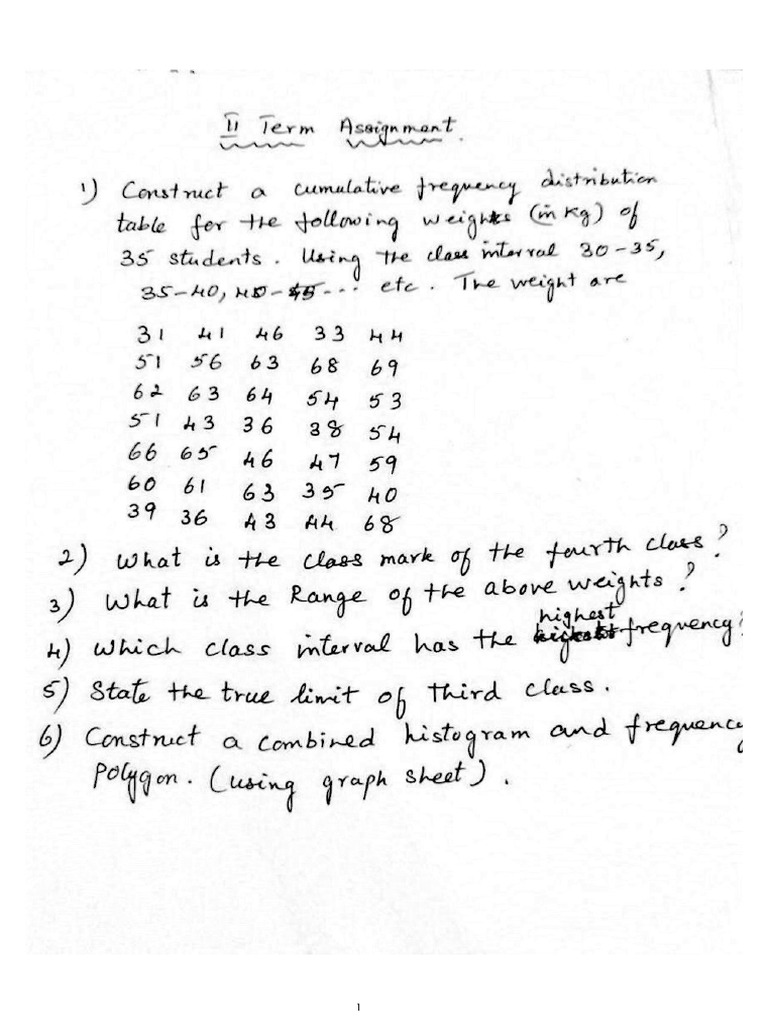 II Term Assignment.
1) Construct a cumulative frequency distribution
table for the following weights (in Kg) of
35 students. Using the class interval 30-35,
35-40, 40-45--- etc. The weight are
31 41 46 33 44
51 56 63 68 69
62 63 64 54 53
51 43 36 38 54
66 65 46 47 59
60 61 63 35 40
39 36 43 44 68
2) What is the class mark of the fourth class?
3) What is the Range of the above weights?
4) Which class interval has the highest frequency?
5) State the true limit of third class.
6) Construct a combined histogram and frequency
Polygon. (using graph sheet).
1